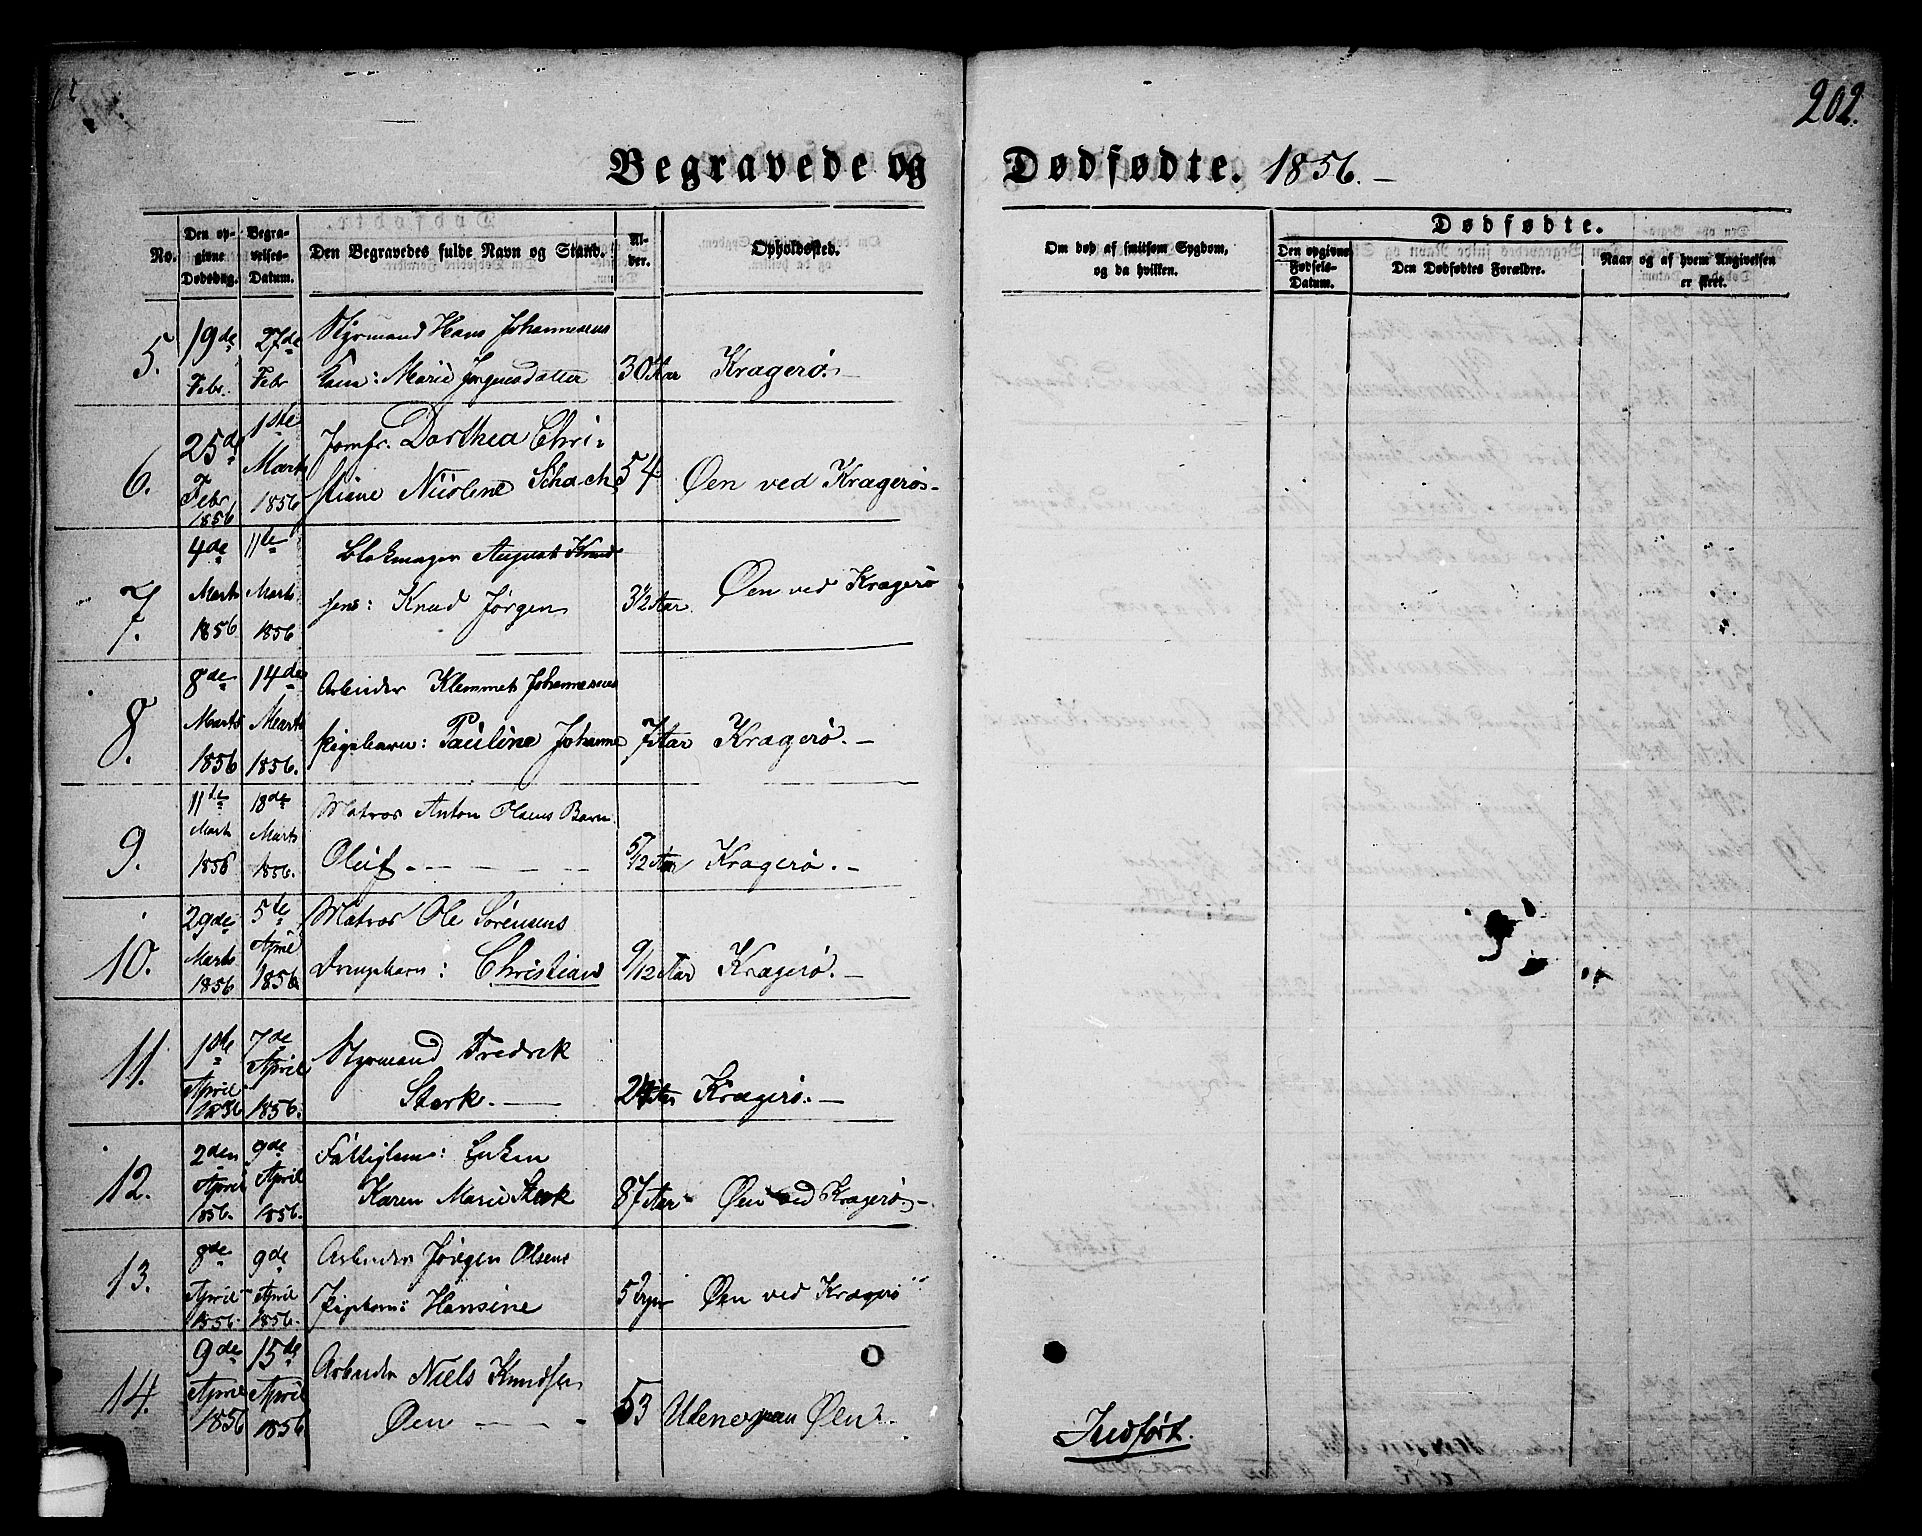 202.
Begravede og Dødfødte. 1856.—
No.
Den opgivne Dødsdag.
Begravelses-Datum.
Den Begravedes fulde Navn og Stand.
Alder.
Opholdssted.
Om død af smitsom Sygdom, og da hvilken.
Dødfødte.
Den opgivne Fødsels-Datum.
Den Dødfødtes Forældre.
Naar og af hvem Angivelsen er skeet.
5. 19de Febr. 27de Febr Styrmand Hans Johannesens
Kone: Marie Jørgensdatter 30 Aar Kragerø.—
6. 25de Febr 1856 1ste Marts 1856 Jomfr. Dorthea Chri-
stiane Nicoline Schach 54 Øen ved Kragerø.—
7. 4de Marts 1856 11te Marts 1856 Blokmager August Knud-
sens: Knud Jørgen 3½ Aar Øen ved Kragerø
8. 8de Marts 1856 14de Marts 1856. Arbeider Klemmet Johannesens
Pigebarn: Pauline Johanne 7 Aar Kragerø.—
9. 11te Marts 1856 18de Marts 1856. Matros Anton Olsens Barn
Oluf 5/12 Aar Kragerø.—
10. 29de Marts 1856 5te April 1856. Matros Ole Sørensens
Drengebarn: Christian 9/12 Aar Kragerø.—
11. 1ste April 1856 7de April 1856. Styrmand Fredrik
Stark.— Aar Kragerø.—
12. 2den April 1856. 9de April 1856. Fattiglem: Enken
Karen Marie Stark 87 Aar Øen ved Kragerø.—
13. 8de April 1856. 9de April 1856. Arbeider Jørgen Olsens
Pigebarn: Hansine 5 Øen ved Kragerø
14. 9de April 1856 15de April 1856 Arbeider Niels Knudsen
Øen — — 53 Øen.
Indført.